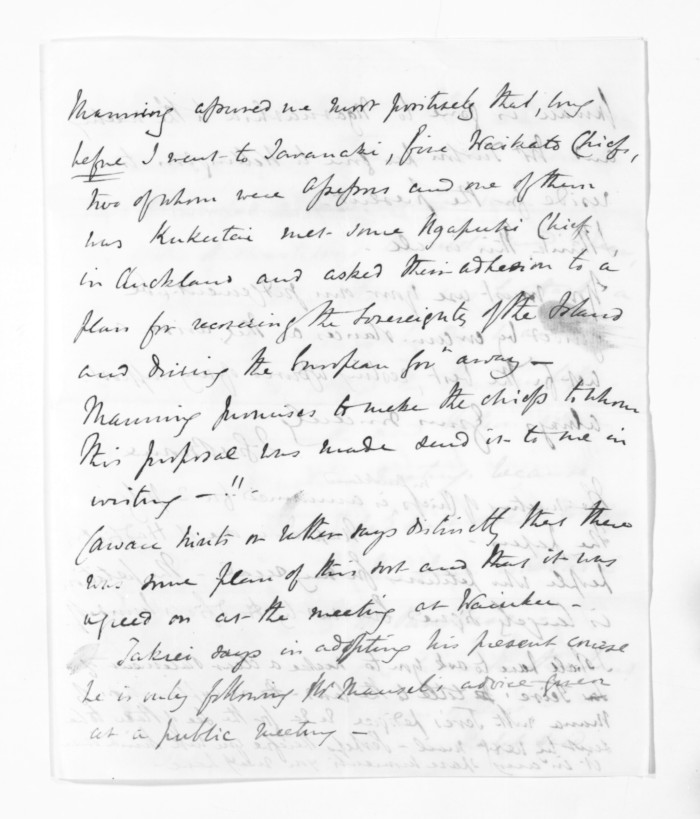 Manning assured me most positively that, long
before I went to Taranaki, five Waikato Chiefs,
two of whom were Assessors and one of them
was Kukutai met some Ngapuhi Chiefs
in Auckland and asked their adhesion to a
plan for recovering the Sovereignty of the Island
and driving the European Govt away —
Manning promises to make the chiefs to whom
this proposal was made send it to me in
writing — !!
hints or rather says distinctly that there
was some plan of this sort and that it was
agreed on at the meeting at Waiuku —
Takrei says in adopting his present course
he is only following Mr Maunsell's advice given
at a public meeting —